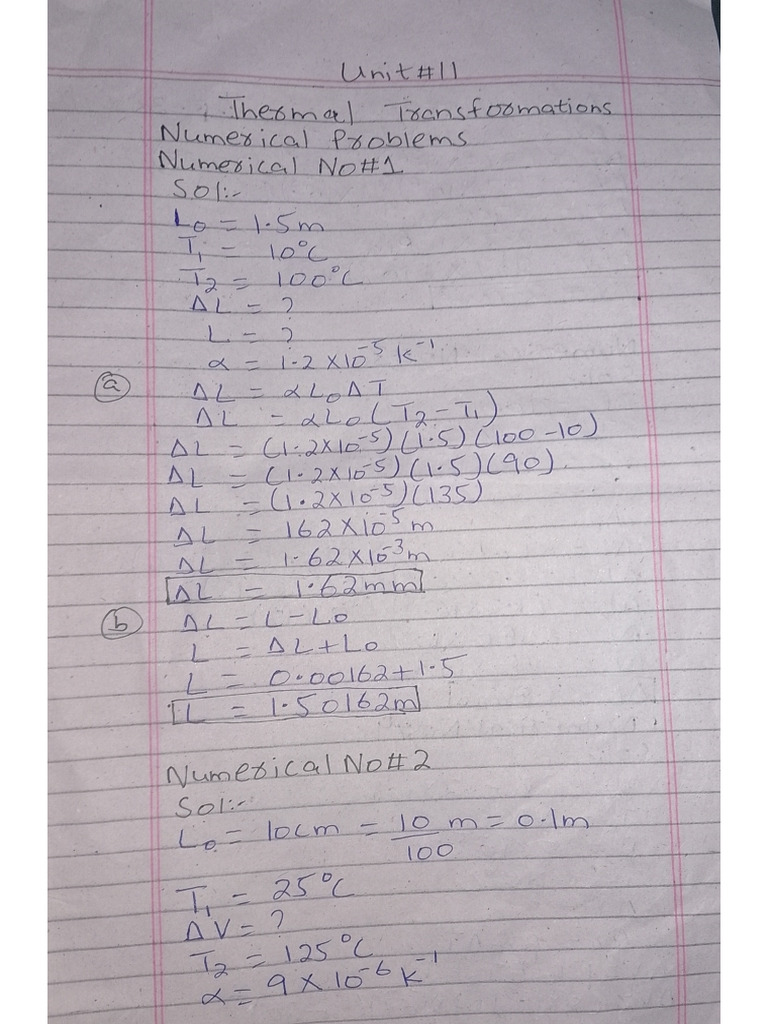 Unit#11
Thermal Transformations
Numerical Problems
Numerical No#1
Sol:-
L₀ = 1.5m
T₁ = 10°C
T₂ = 100°C
ΔL = ?
L = ?
α = 1.2×10⁻⁵ K⁻¹
(a) ΔL = αL₀ΔT
ΔL = αL₀(T₂-T₁)
ΔL = (1.2×10⁻⁵)(1.5)(100-10)
ΔL = (1.2×10⁻⁵)(1.5)(90)
ΔL = (1.2×10⁻⁵)(135)
ΔL = 162×10⁻⁵m
ΔL = 1.62×10⁻³m
ΔL = 1.62mm
(b) ΔL = L-L₀
L = ΔL+L₀
L = 0.00162+1.5
L = 1.50162m
Numerical No#2
Sol:-
L₀ = 10cm = 10/100 m = 0.1m
T₁ = 25°C
ΔV = ?
T₂ = 125°C
α = 9×10⁻⁶ K⁻¹